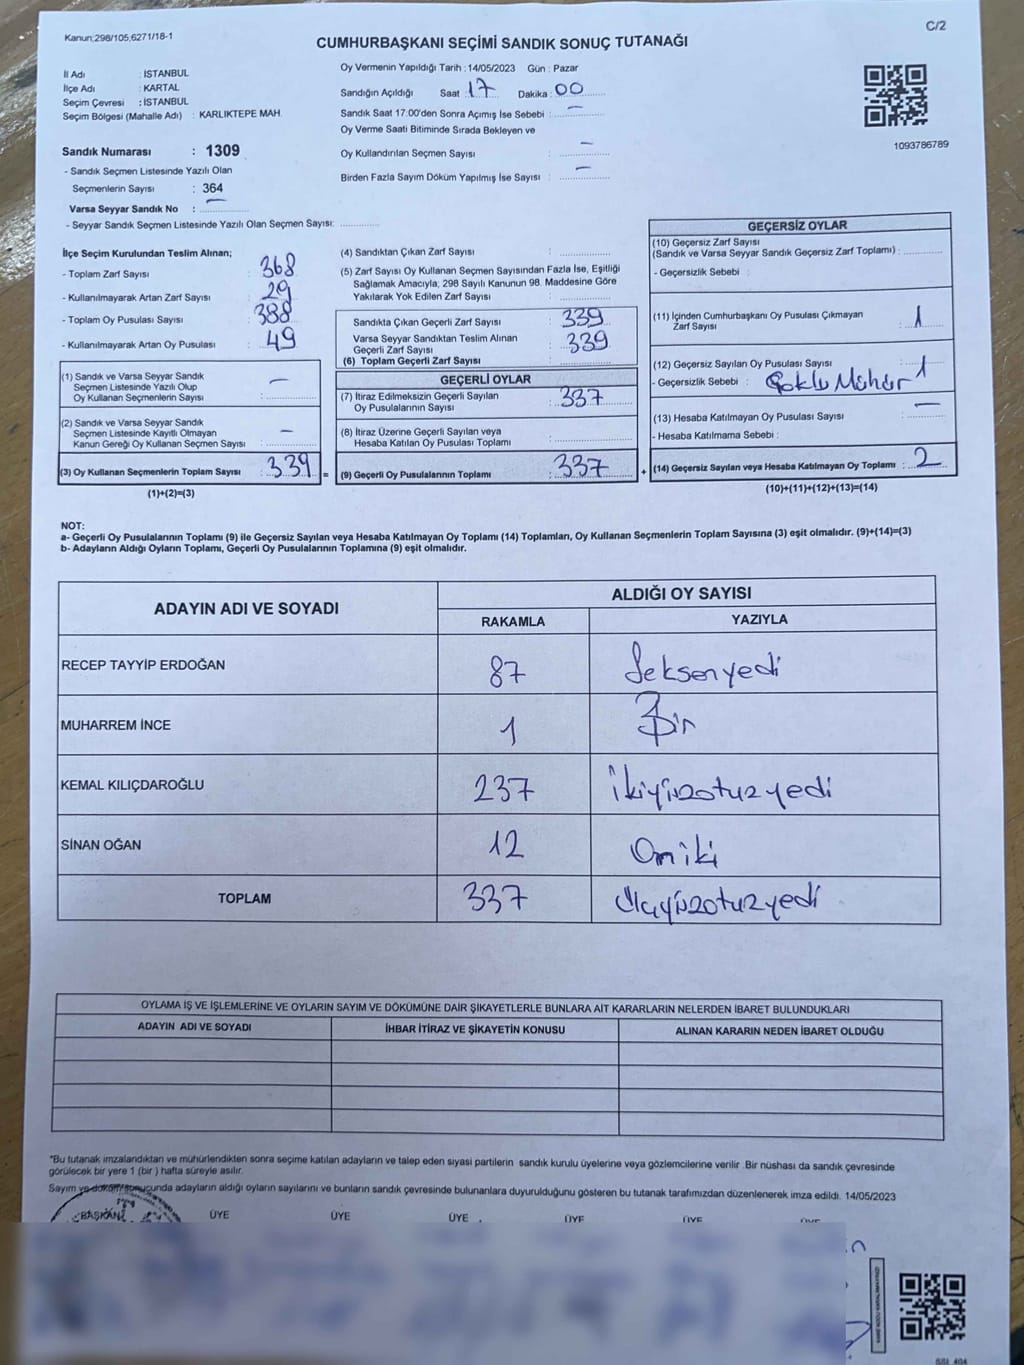 Kanun:298/105,6271/18-1
C/2
CUMHURBAŞKANI SEÇİMİ SANDIK SONUÇ TUTANAĞI
İl Adı : İSTANBUL
İlçe Adı : KARTAL
Seçim Çevresi : İSTANBUL
Seçim Bölgesi (Mahalle Adı) : KARLIKTEPE MAH.
Sandık Numarası : 1309
- Sandık Seçmen Listesinde Yazılı Olan
Seçmenlerin Sayısı : 364
Varsa Seyyar Sandık No : —
- Seyyar Sandık Seçmen Listesinde Yazılı Olan Seçmen Sayısı:
Oy Vermenin Yapıldığı Tarih : 14/05/2023 Gün : Pazar
Sandığın Açıldığı Saat : 17 Dakika : 00
Sandık Saat 17:00'den Sonra Açımış İse Sebebi : —
Oy Verme Saati Bitiminde Sırada Bekleyen ve
Oy Kullandırılan Seçmen Sayısı : —
Birden Fazla Sayım Döküm Yapılmış İse Sayısı : —
1093786789
İlçe Seçim Kurulundan Teslim Alınan;
- Toplam Zarf Sayısı : 368
- Kullanılmayarak Artan Zarf Sayısı : 29
- Toplam Oy Pusulası Sayısı : 388
- Kullanılmayarak Artan Oy Pusulası : 49
(1) Sandık ve Varsa Seyyar Sandık
Seçmen Listesinde Yazılı Olup
Oy Kullanan Seçmenlerin Sayısı : —
(2) Sandık ve Varsa Seyyar Sandık
Seçmen Listesinde Kayıtlı Olmayan
Kanun Gereği Oy Kullanan Seçmen Sayısı : —
(3) Oy Kullanan Seçmenlerin Toplam Sayısı : 339
(1)+(2)=(3)
=
(4) Sandıktan Çıkan Zarf Sayısı :
(5) Zarf Sayısı Oy Kullanan Seçmen Sayısından Fazla İse, Eşitliği
Sağlamak Amacıyla, 298 Sayılı Kanunun 98. Maddesine Göre
Yakılarak Yok Edilen Zarf Sayısı :
Sandıkta Çıkan Geçerli Zarf Sayısı : 339
Varsa Seyyar Sandıktan Teslim Alınan
Geçerli Zarf Sayısı : 339
(6) Toplam Geçerli Zarf Sayısı :
GEÇERLİ OYLAR
(7) İtiraz Edilmeksizin Geçerli Sayılan
Oy Pusulalarının Sayısı : 337
(8) İtiraz Üzerine Geçerli Sayılan veya
Hesaba Katılan Oy Pusulası Toplamı :
(9) Geçerli Oy Pusulalarının Toplamı : 337
+
GEÇERSİZ OYLAR
(10) Geçersiz Zarf Sayısı
(Sandık ve Varsa Seyyar Sandık Geçersiz Zarf Toplamı) :
- Geçersizlik Sebebi :
(11) İçinden Cumhurbaşkanı Oy Pusulası Çıkmayan
Zarf Sayısı : 1
(12) Geçersiz Sayılan Oy Pusulası Sayısı : 1
- Geçersizlik Sebebi : Çoklu Mühür
(13) Hesaba Katılmayan Oy Pusulası Sayısı : —
- Hesaba Katılmama Sebebi :
(14) Geçersiz Sayılan veya Hesaba Katılmayan Oy Toplamı : 2
(10)+(11)+(12)+(13)=(14)
NOT:
a- Geçerli Oy Pusulalarının Toplamı (9) ile Geçersiz Sayılan veya Hesaba Katılmayan Oy Toplamı (14) Toplamları, Oy Kullanan Seçmenlerin Toplam Sayısına (3) eşit olmalıdır. (9)+(14)=(3)
b- Adayların Aldığı Oyların Toplamı, Geçerli Oy Pusulalarının Toplamına (9) eşit olmalıdır.
ADAYIN ADI VE SOYADI
ALDIĞI OY SAYISI
RAKAMLA YAZIYLA
RECEP TAYYİP ERDOĞAN 87 Seksenyedi
MUHARREM İNCE 1 Bir
KEMAL KILIÇDAROĞLU 237 ikiyüzotuzyedi
SİNAN OĞAN 12 Oniki
TOPLAM 337 Üçyüzotuzyedi
OYLAMA İŞ VE İŞLEMLERİNE VE OYLARIN SAYIM VE DÖKÜMÜNE DAİR ŞİKAYETLERLE BUNLARA AİT KARARLARIN NELERDEN İBARET BULUNDUKLARI
ADAYIN ADI VE SOYADI İHBAR İTİRAZ VE ŞİKAYETİN KONUSU ALINAN KARARIN NEDEN İBARET OLDUĞU
*Bu tutanak imzalandıktan ve mühürlendikten sonra seçime katılan adayların ve talep eden siyasi partilerin sandık kurulu üyelerine veya gözlemcilerine verilir .Bir nüshası da sandık çevresinde
görülecek bir yere 1 (bir ) hafta süreyle asılır.
Sayım ve döküm sonucunda adayların aldığı oyların sayılarını ve bunların sandık çevresinde bulunanlara duyurulduğunu gösteren bu tutanak tarafımızdan düzenlenerek imza edildi. 14/05/2023
BAŞKAN ÜYE ÜYE ÜYE ÜYE ÜYE ÜYE